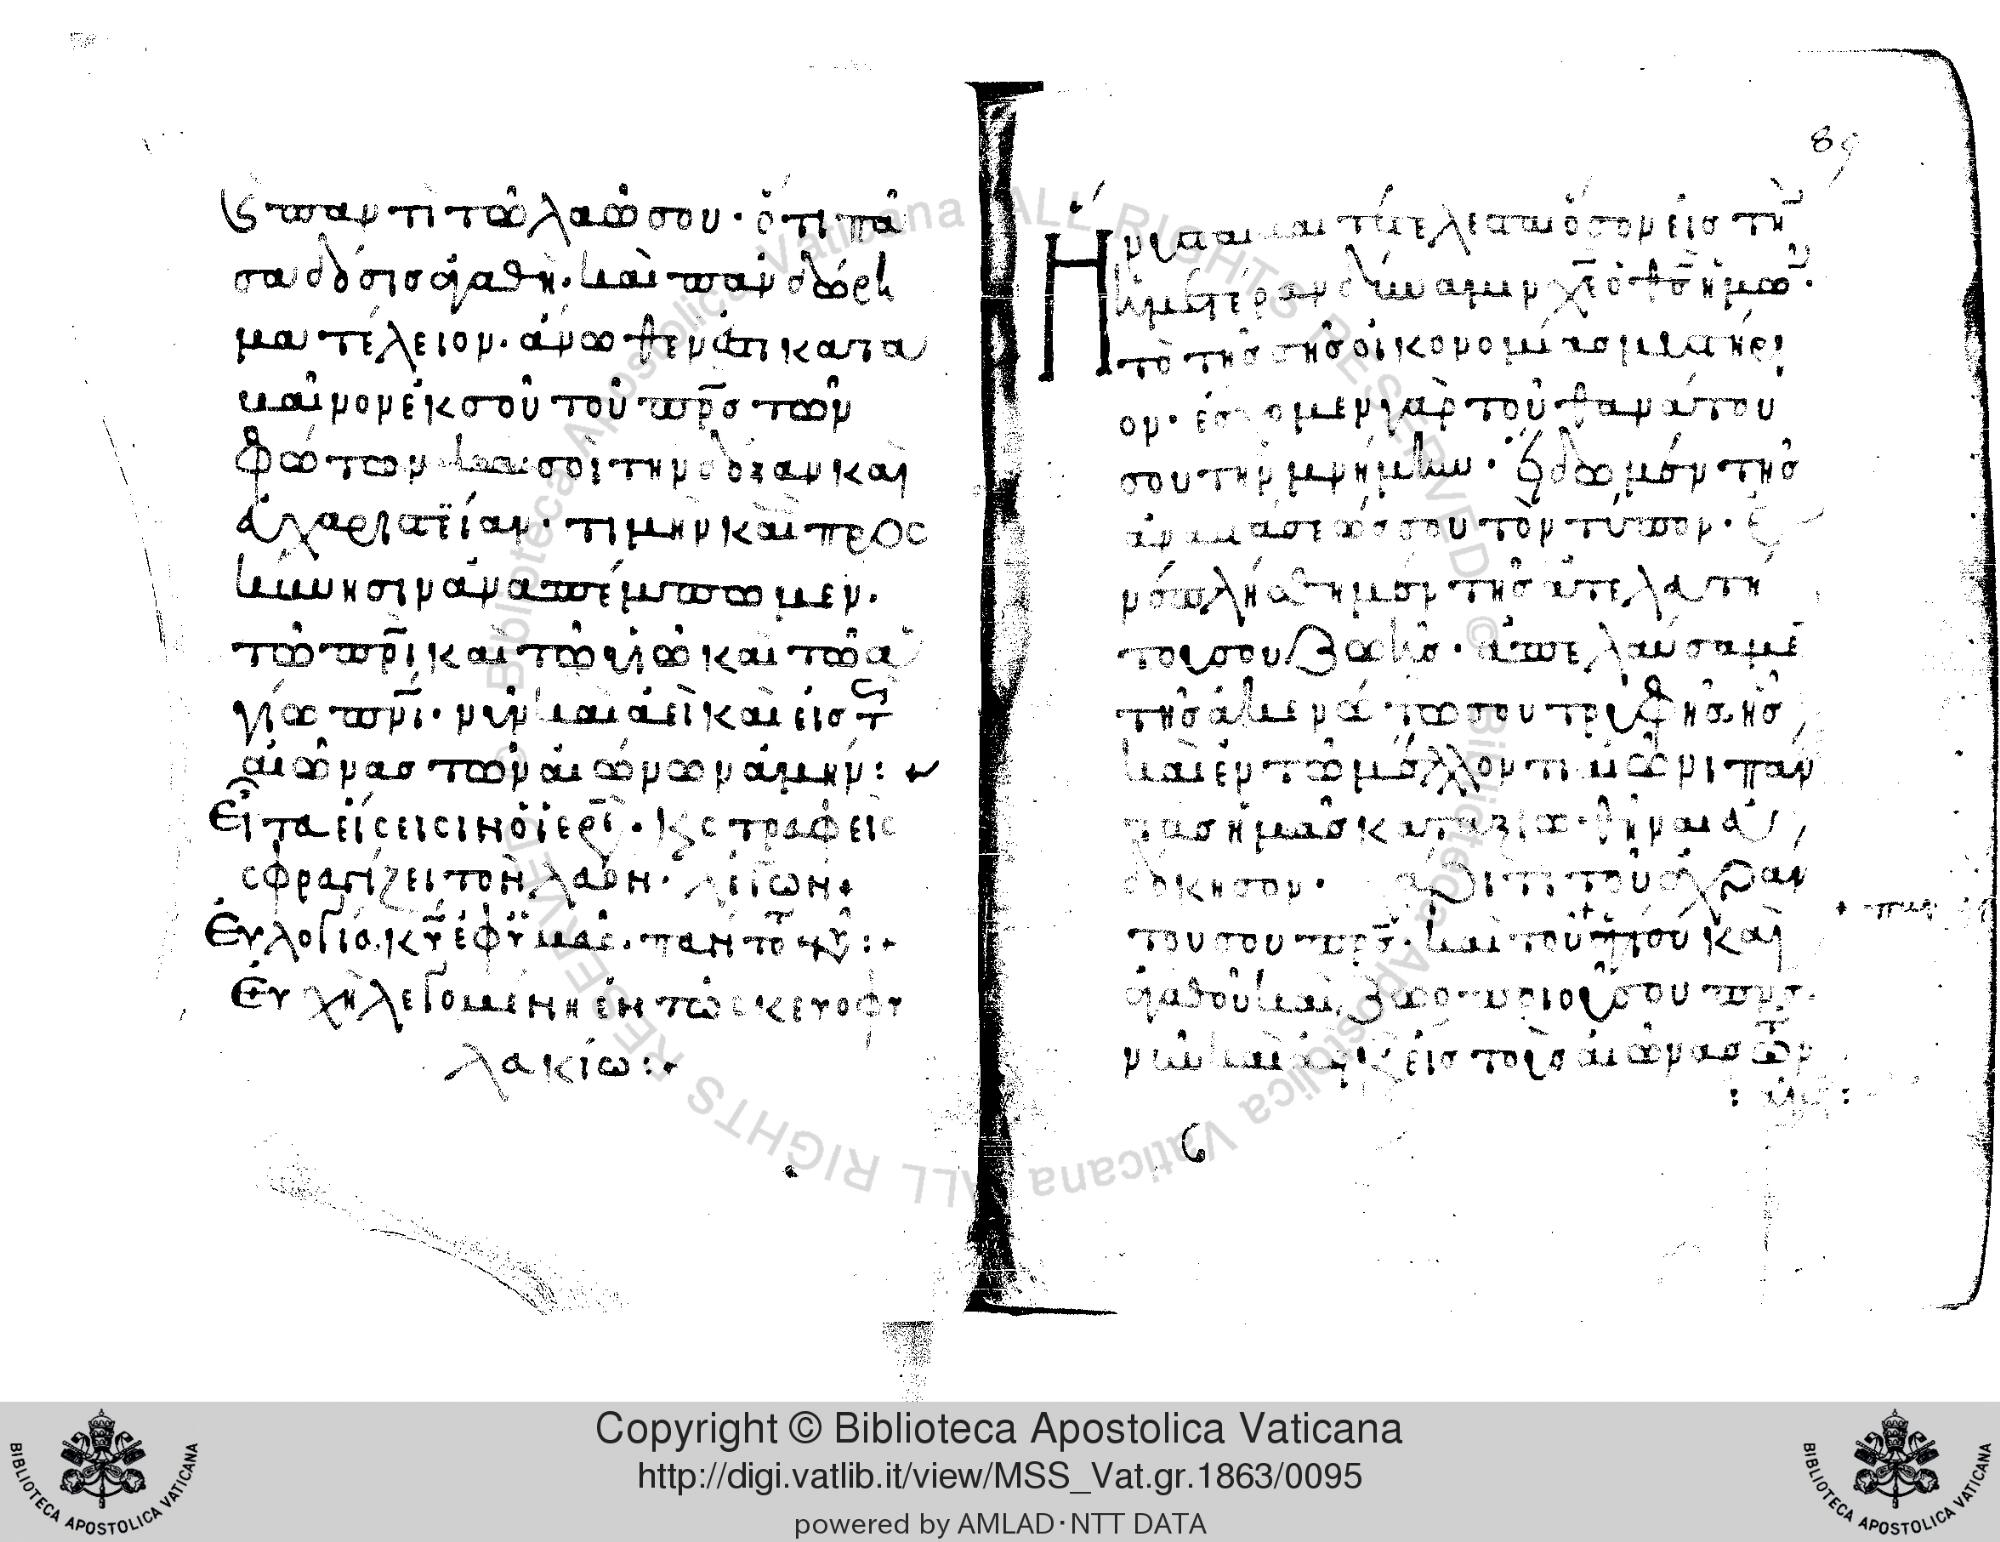 ϛ παντὶ τῶ λαῶ σου· ὅτι πᾶ
σα δόσις ἀγαθὴ· καὶ πᾶν δώρη
μα τέλειον· ἄνωθέν ἐστι κατα
βαῖνον ἐκ σοῦ τοῦ πρ̅ς τῶν
φώτων καὶ σοὶ τὴν δόξαν καὶ
εὐχαριστίαν· τιμὴν καὶ προς
κύνησιν ἀναπέμπωμεν·
τῶ πρ̅ὶ καὶ τῶ υἱῶ καὶ τῶ ἁ
γίω πν̅ι· νῦν καὶ ἀεὶ καὶ εἰς τ
αἰῶνας τῶν αἰώνων ἀμήν:
Εἶτα εἴσεισιν ὁ ἱερ̅· ϛ στραφεὶς
σφραγίζει τὸν λαὸν· λέγων
Εὐλογία κ̅υ ἐφ' ὑμᾶς· πάντοτε νῦ:
Εὐχὴ λεγομένη ἐν τῶ σκευοφυ
λακίω:
89
Ἤνυσται καὶ τετέλεσται ὅσον εἰς τὴν
ἡμετέραν δύναμιν χ̅ε ὁ θ̅ς ἡμῶν·
τὸ τῆς σῆς οἰκονομίας μυστήρι
ον· ἔσχομεν γὰρ τοῦ θανάτου
σου τὴν μνήμην· εἴδομεν τῆς
ἀναστάσεώς σου τὸν τύπον· ἐ
νεπλήσθημεν τῆς ἀτελευτή
του σου ζωῆς· ἀπελαύσαμε
τῆς ἀκενώτου σου τρυφῆς· ἧς
καὶ ἐν τῶ μέλλοντι αἰῶνι πάν
τας ἡμᾶς καταξιωθῆναι εὐ
δόκησον· χάριτι τοῦ ἀνάρχου
του σου πρ̅ς· καὶ τοῦ ἁγίου καὶ
ἀγαθοῦ καὶ ζωοποιοῦ σου πν̅ς·
νῦν καὶ ἀεὶ ϛ εἰς τοὺς αἰῶνας τῶν
: ἀμ :
Copyright © Biblioteca Apostolica Vaticana
http://digi.vatlib.it/view/MSS_Vat.gr.1863/0095
powered by AMLAD·NTT DATA